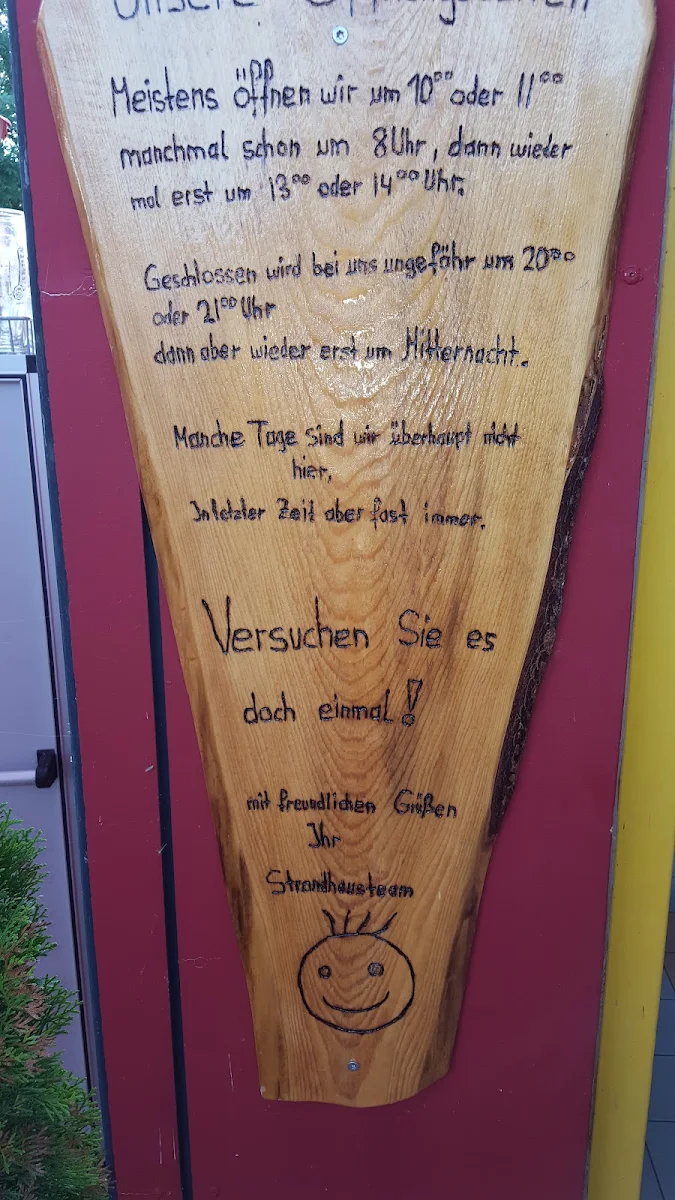 Unsere Öffnungszeiten
Meistens öffnen wir um 10⁰⁰ oder 11⁰⁰
manchmal schon um 8Uhr, dann wieder
mal erst um 13⁰⁰ oder 14⁰⁰ Uhr.
Geschlossen wird bei uns ungefähr um 20⁰⁰
oder 21⁰⁰ Uhr
dann aber wieder erst um Mitternacht.
Manche Tage sind wir überhaupt nicht
hier,
In letzter Zeit aber fast immer.
Versuchen Sie es
doch einmal!
mit freundlichen Grüßen
Ihr
Strandhausteam